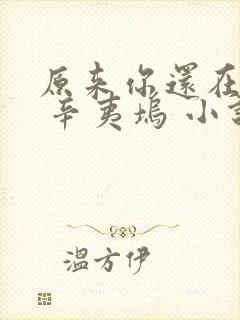 原来你還在
辛夷塢 小
溫方伊